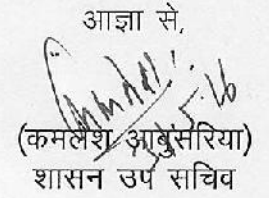 आज्ञा से,
(कमलेश आबुसरिया)
शासन उप सचिव